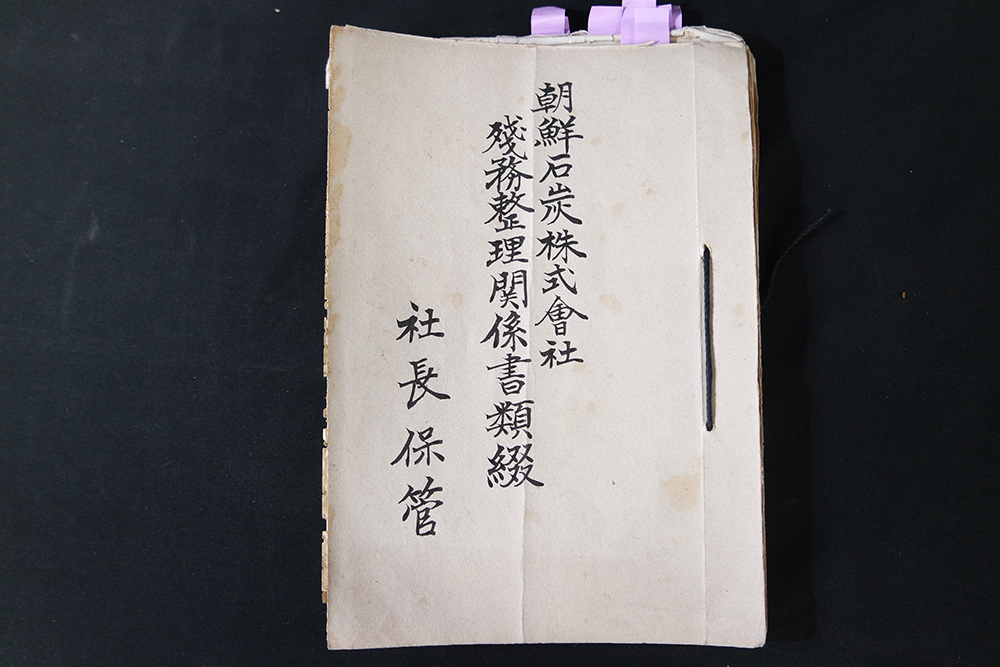 朝鮮石炭株式會社
殘務整理関係書類綴
社長保管